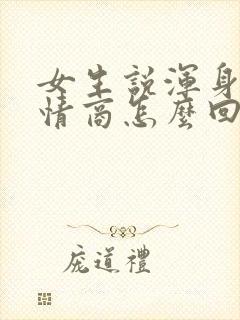 女生説渾身
情商怎麼回
龐道禮